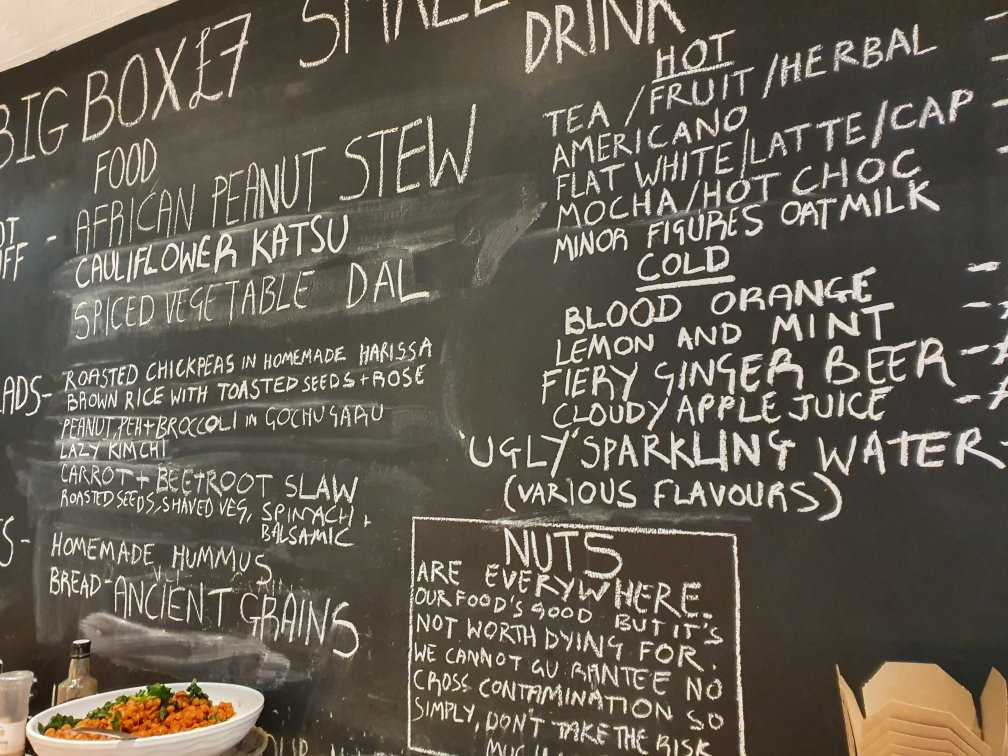 BIG BOX £7
FOOD
AFRICAN PEANUT STEW
CAULIFLOWER KATSU
SPICED VEGETABLE DAL
ROASTED CHICKPEAS IN HOMEMADE HARISSA
BROWN RICE WITH TOASTED SEEDS + ROSE
PEANUT, PEA + BROCCOLI IN GOCHUGARU
LAZY KIMCHI
CARROT + BEETROOT SLAW
ROASTED SEEDS, SHAVED VEG, SPINACH +
BALSAMIC
HOMEMADE HUMMUS
BREAD - ANCIENT GRAINS
DRINK
HOT
TEA / FRUIT / HERBAL
AMERICANO
FLAT WHITE / LATTE / CAP
MOCHA / HOT CHOC
MINOR FIGURES OATMILK
COLD
BLOOD ORANGE
LEMON AND MINT
FIERY GINGER BEER
CLOUDY APPLE JUICE
'UGLY' SPARKLING WATER
(VARIOUS FLAVOURS)
NUTS
ARE EVERYWHERE.
OUR FOOD'S GOOD BUT IT'S
NOT WORTH DYING FOR.
WE CANNOT GU RANTEE NO
CROSS CONTAMINATION SO
SIMPLY, DON'T TAKE THE RISK